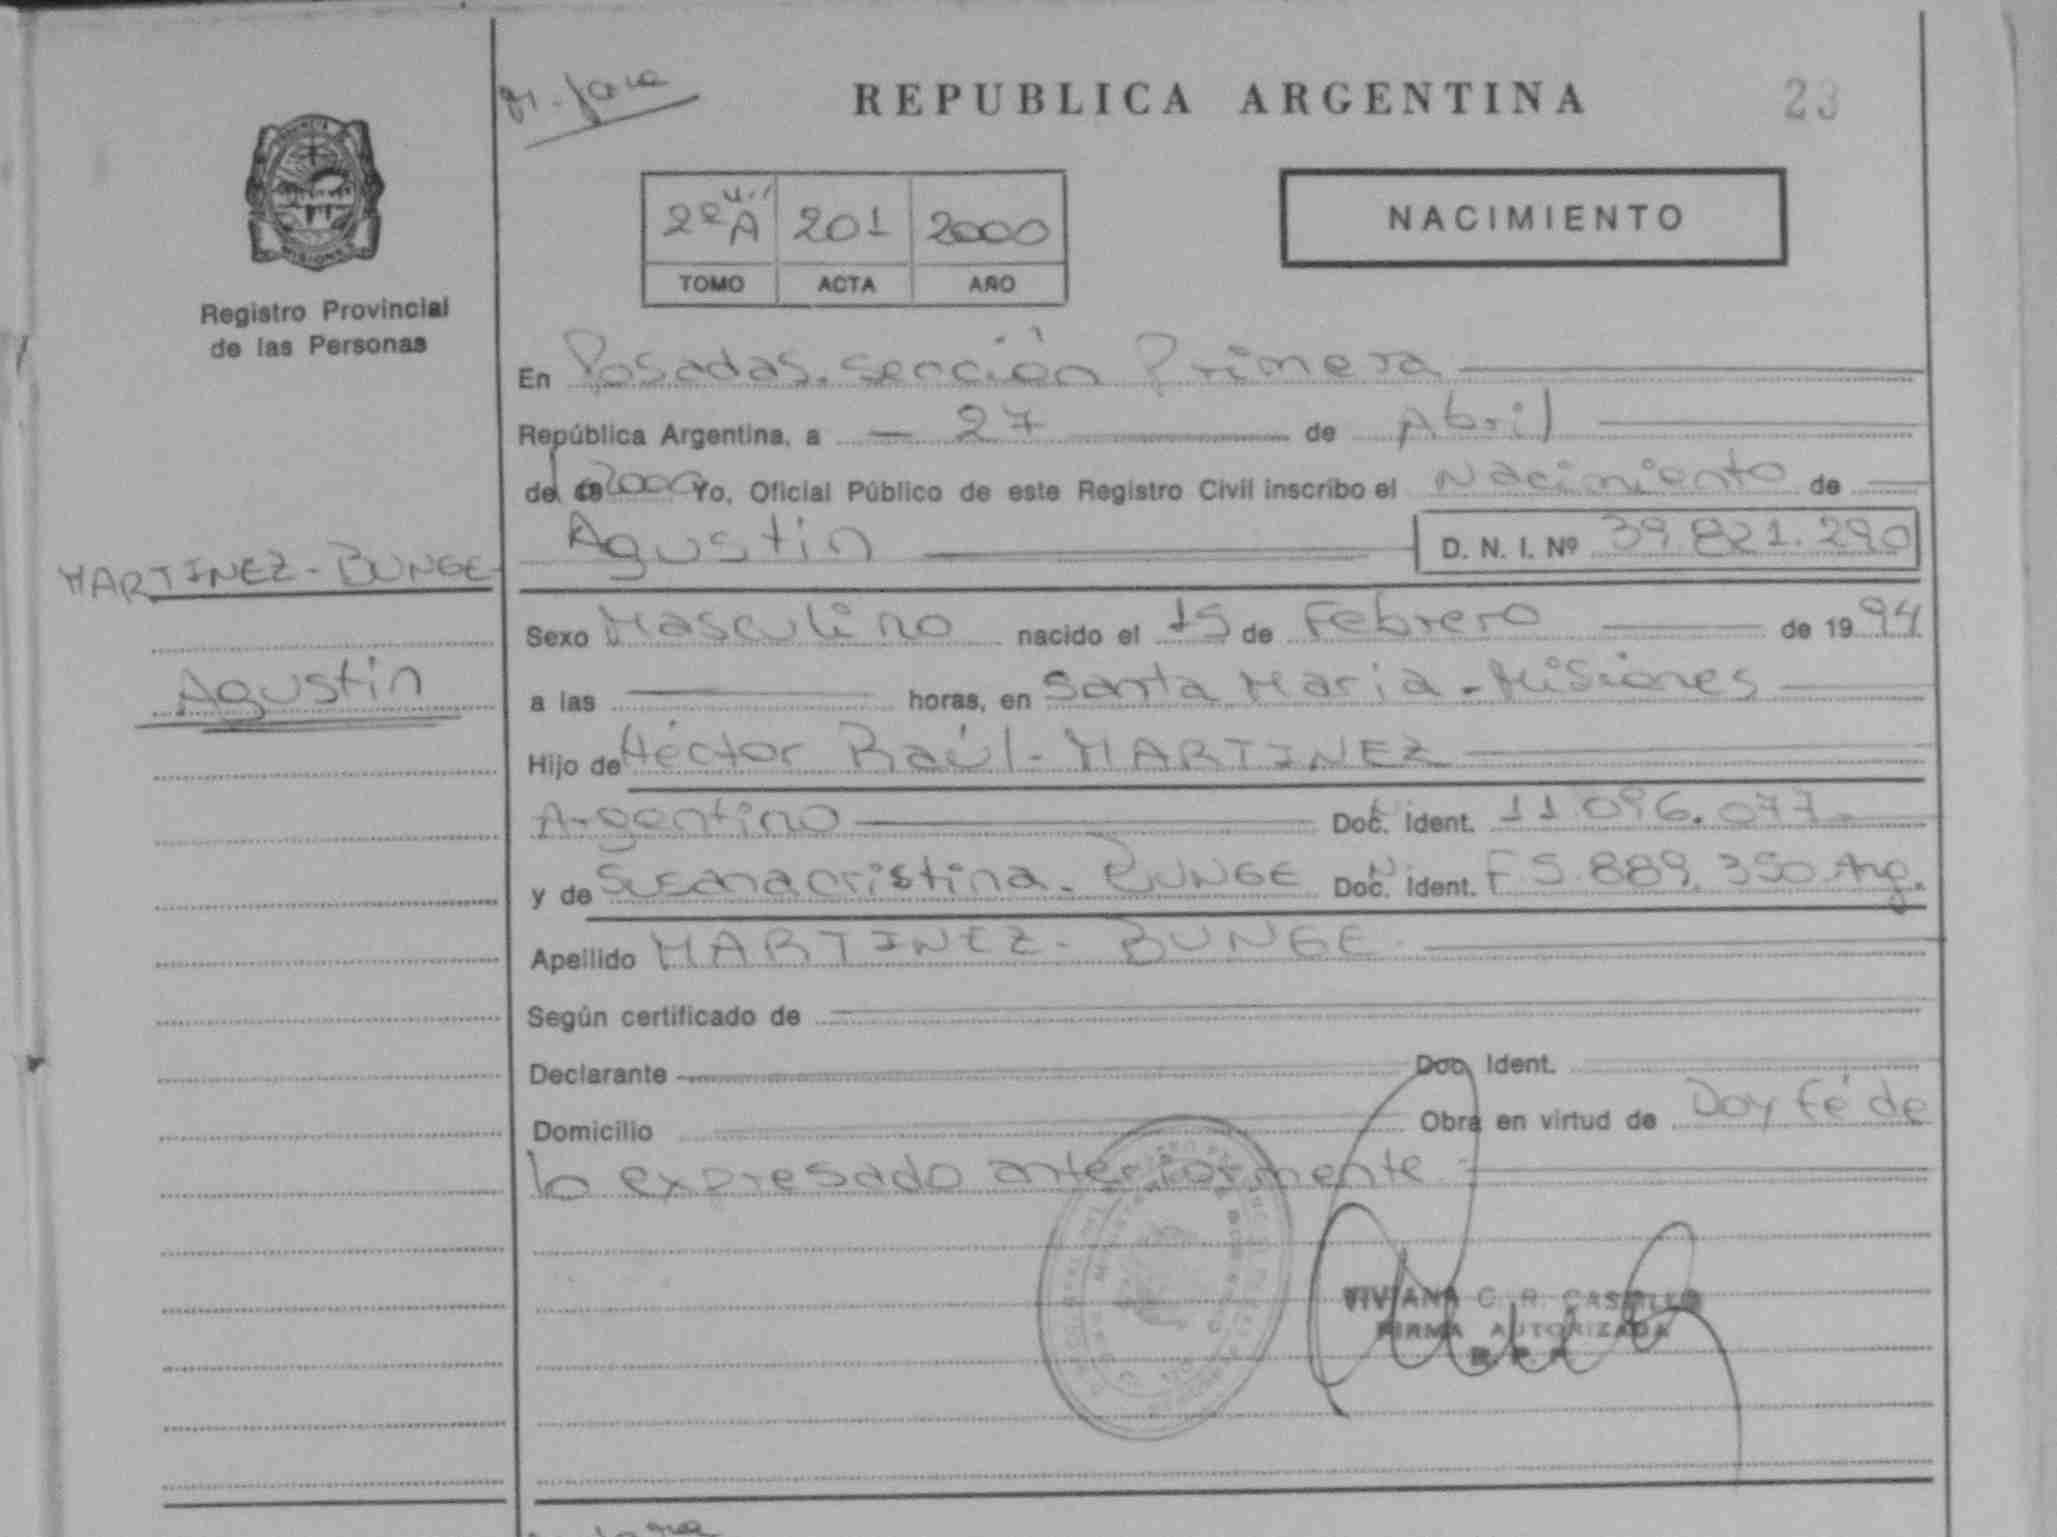 REPUBLICA ARGENTINA
23
2º A 201 2000
TOMO ACTA AÑO
NACIMIENTO
Registro Provincial
de las Personas
En Posadas. sección Primera
República Argentina, a 27 de Abril
del 2000 Yo, Oficial Público de este Registro Civil inscribo el Nacimiento de
Agustin D. N. I. Nº 39.821.290
MARTINEZ - BUNGE
Agustin
Sexo Masculino nacido el 15 de Febrero de 1994
a las horas, en Santa Maria - Misiones
Hijo de Héctor Raúl - MARTINEZ
Argentino Doc. Ident. 11.096.077
y de Susana cristina. BUNGE Doc. Ident. F 5.889.350 Arg.
Apellido MARTINEZ - BUNGE
Según certificado de
Declarante Doc. Ident.
Domicilio Obra en virtud de Doy fé de
lo expresado anteriormente
VIVIANA C. R. CASTILLO
FIRMA AUTORIZADA